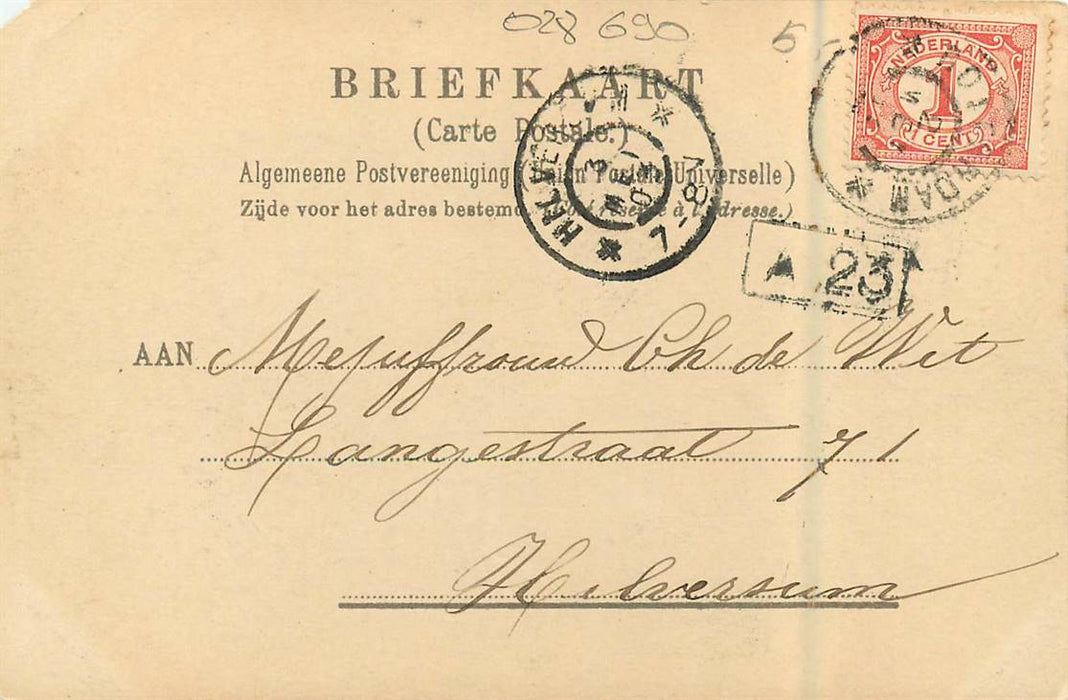 028 690 5
BRIEFKAART
(Carte Postale.)
Algemeene Postvereeniging (Union Postale Universelle)
Zijde voor het adres bestemd. (Côté réservé à l'adresse.)
NEDERLAND
1
1 CENT
3
MEI
04
7-8
A 23
AAN Mejuffrouw Ch de Wet
Langestraat 71
Hilversum